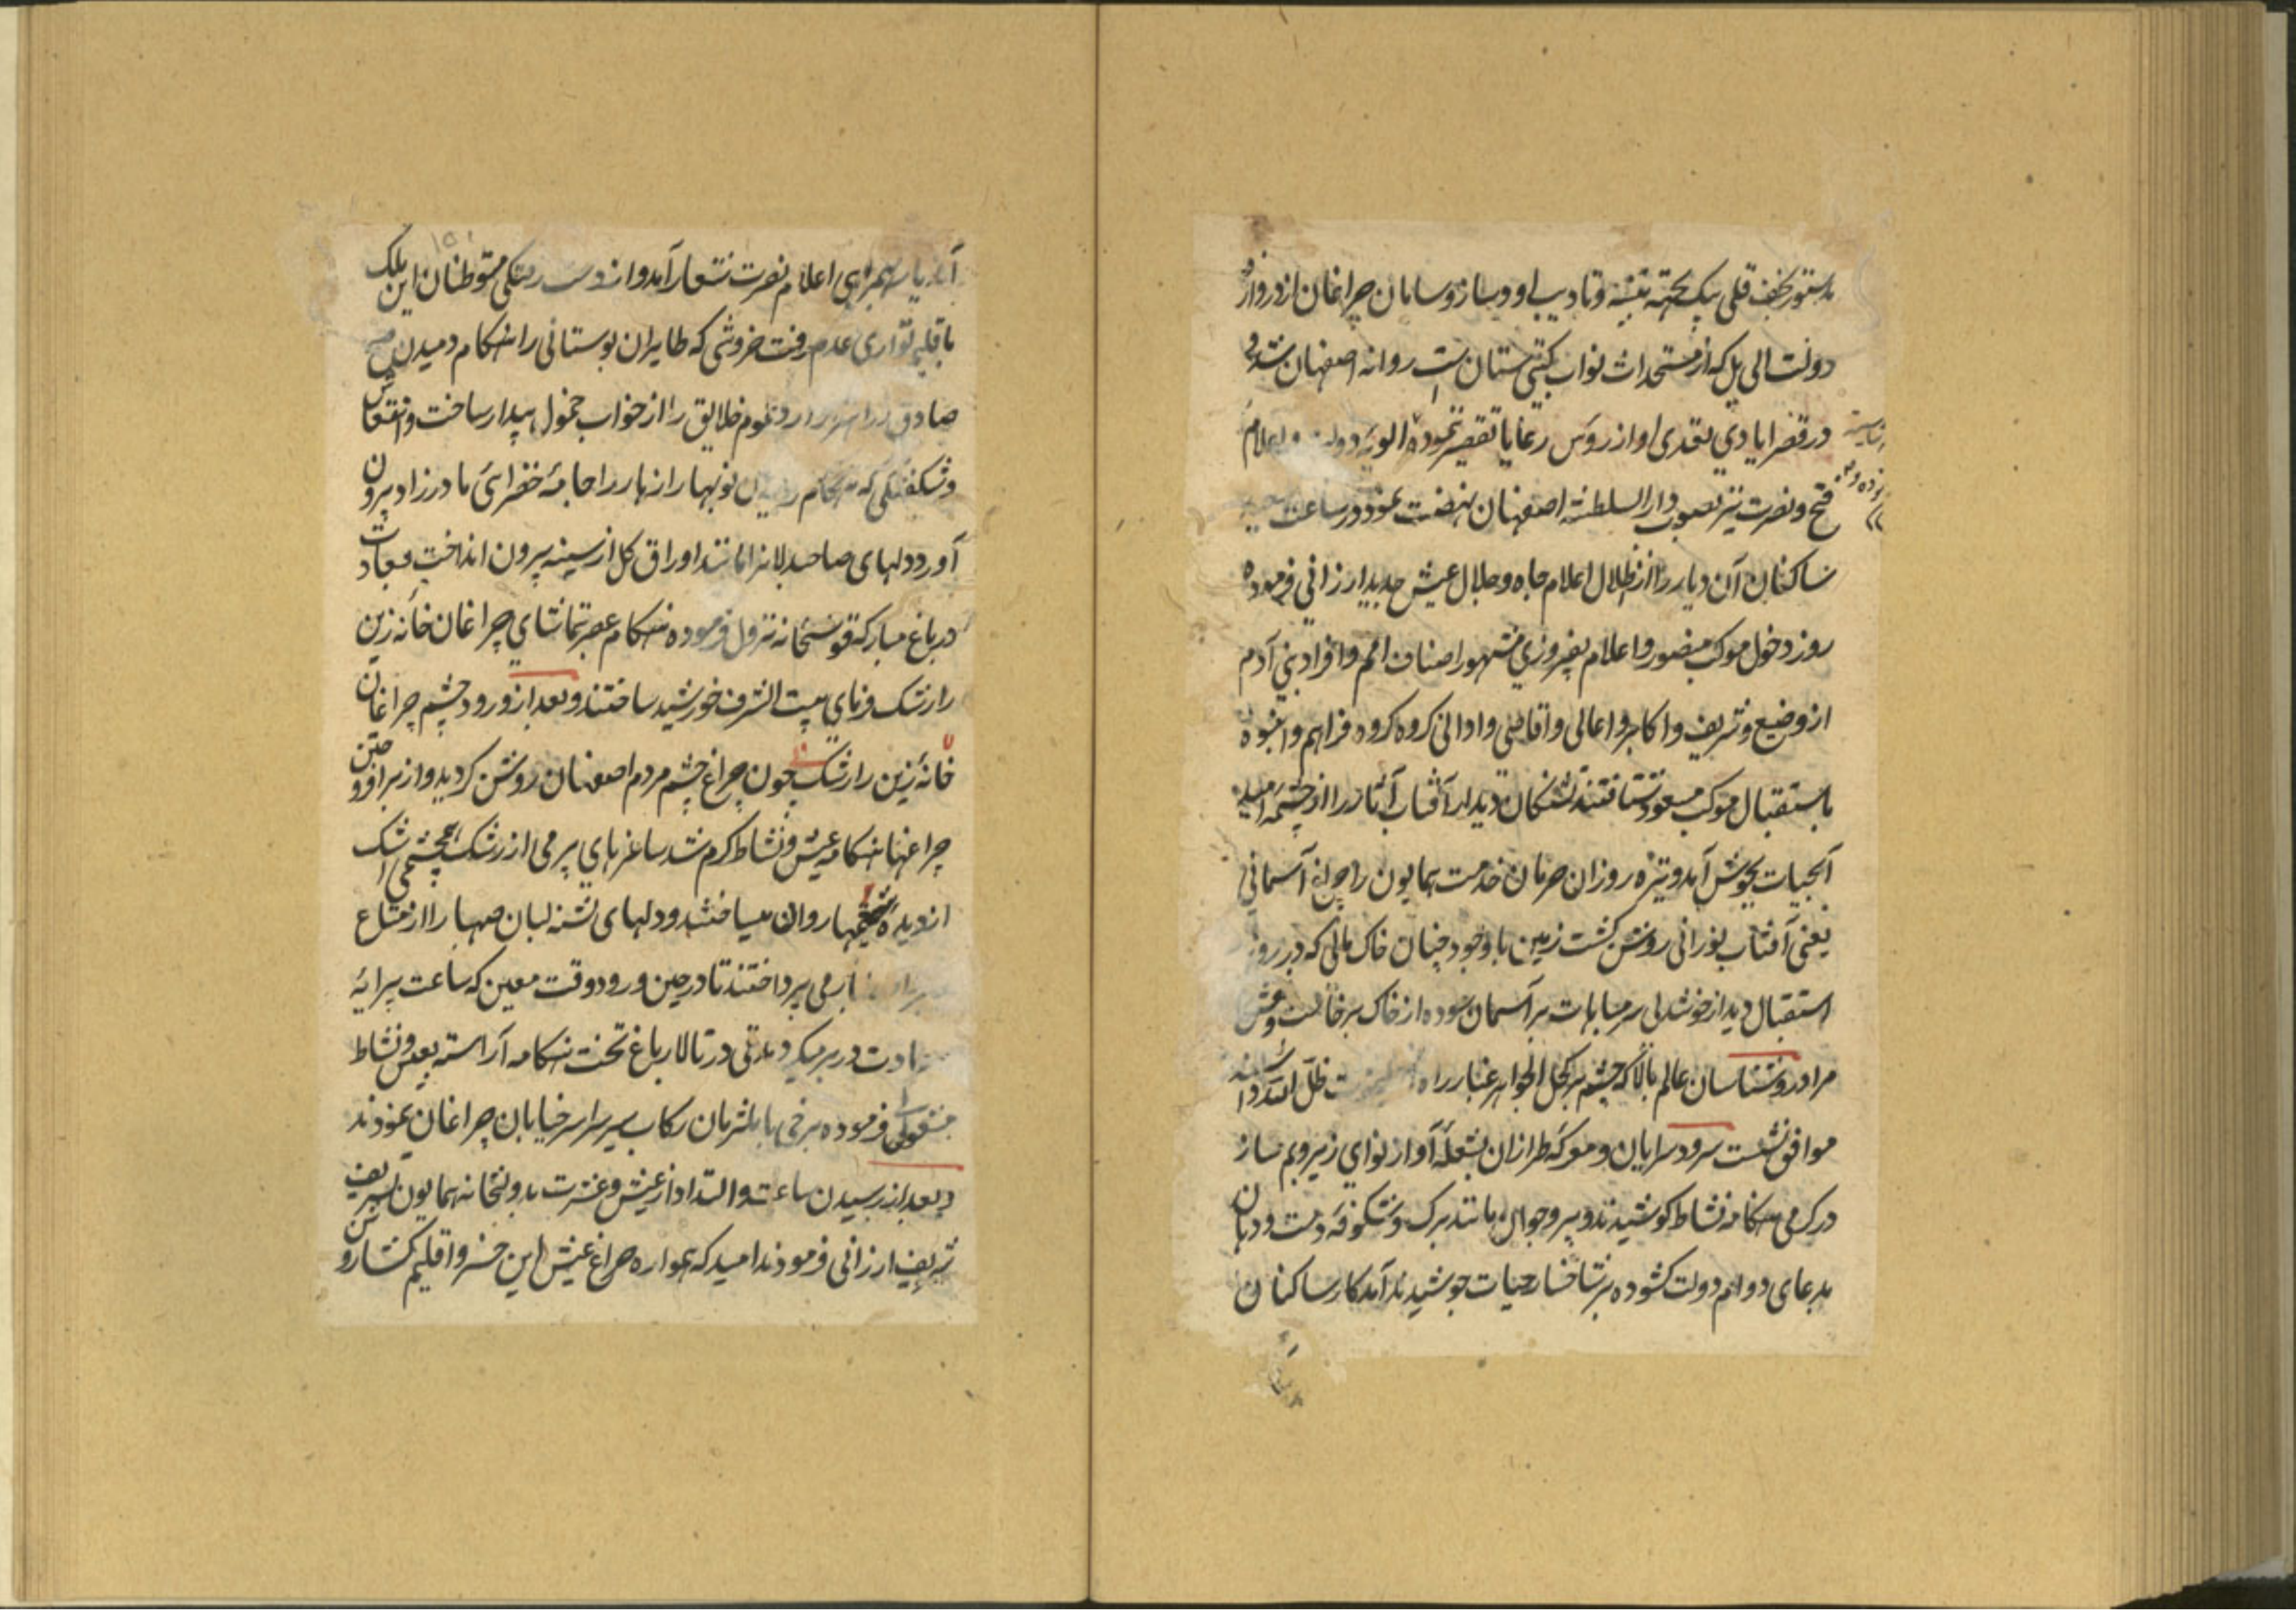 بدستور نجف قلی بیک بجهة تنبیه و تادیب او و ساز و سامان چراغان از دروازه
دولت الی پل که از مستحداث نواب کیتی ستان است روانه اصفهان شد و
در قصر ایادی تعدی او از رؤس رعایا تقصیر ننموده الویهٔ دولت و اعلام
فتح و نصرت نیز بصوب دار السلطنه اصفهان نهضت نمود و در ساعت سعید
ساکنان آن دیار را از ظلال اعلام جاه و جلال عیش جدید ارزانی فرموده
روز دخول موکب منصور و اعلام بفیروزی مشهور اصناف امم و افراد بنی آدم
از وضیع و شریف و اکابر و اعالی و اقاصی و ادانی کروه کروه فراهم و انبوه
باستقبال موکب مسعود شتافتند تشنکان دیدار آفتاب آثار را از چشمه امید
آبحیات بجوش آمد و تیره روزان حرمان خدمت همایون را چراغ آسمانی
یعنی آفتاب نورانی روشن کشت زمین با وجود چنان خاک مالی که در روز
استقبال دید از خوشدلی سر مباهات بر آسمان سوده از خاک برخاست و
مراد روشناسان عالم بالا که چشم بر کحل الجواهر غبار راه ظل الله
موافق نشست سرود سرایان و معرکه طرازان بشعلهٔ آواز نوای زیر و بم ساز
در کرمی هنکامه نشاط کوشیدند و پیر و جوان مانند برک و شکوفه دست و دهان
بدعای دوام دولت کشوده بر شاخسار حیات جوشیدند آمد کار ساکنان
آن دیار بهمراهی اعلام نصرت شعار آمد و از دست رفتکی متوطنان این ملک
باقلیم تواری عدم رفت خروشی که طایران بوستانی را هنکام دمیدن صبح
صادق عموم خلایق را از خواب خمول بیدار ساخت و انتعاش
و شکفتکی که هنکام رسیدن نوبهار ازهار را جامهٔ خضرای مادرزاد بیرون
آورد دلهای صاحبدلانرا مانند اوراق کل از سینه بیرون انداخت بسعادت
در باغ مبارکه قوشخانه نزول فرموده هنکام عصر بتماشای چراغان خانه زین
را رشک فرمای بیت الشرف خورشید ساختند و بعد از ورود چشم چراغان
خانهٔ زین را رشک چون چراغ چشم مردم اصفهان روشن کردید و از برافروختن
چراغها هنکامه عیش و نشاط کرم شد ساغرهای پر می از رشک هم چشمی اشک
از دیده روان میساختند و دلهای تشنه لبان صهبا را از شعاع
می پرداختند تا در حین ورود وقت معین که ساعت پیرایه
سعادت در بر میکرد مدتی در تالار باغ تخت هنکامه آراسته بعیش و نشاط
مشغولی فرموده برخی با ملتزمان رکاب بسیر سراسر خیابان چراغان نمودند
و بعد از رسیدن ساعت و التداد از عیش و عشرت بدولتخانه همایون تشریف
شریف ارزانی فرمودند امید که همواره چراغ عیش این خسرو اقلیم کشا روشن